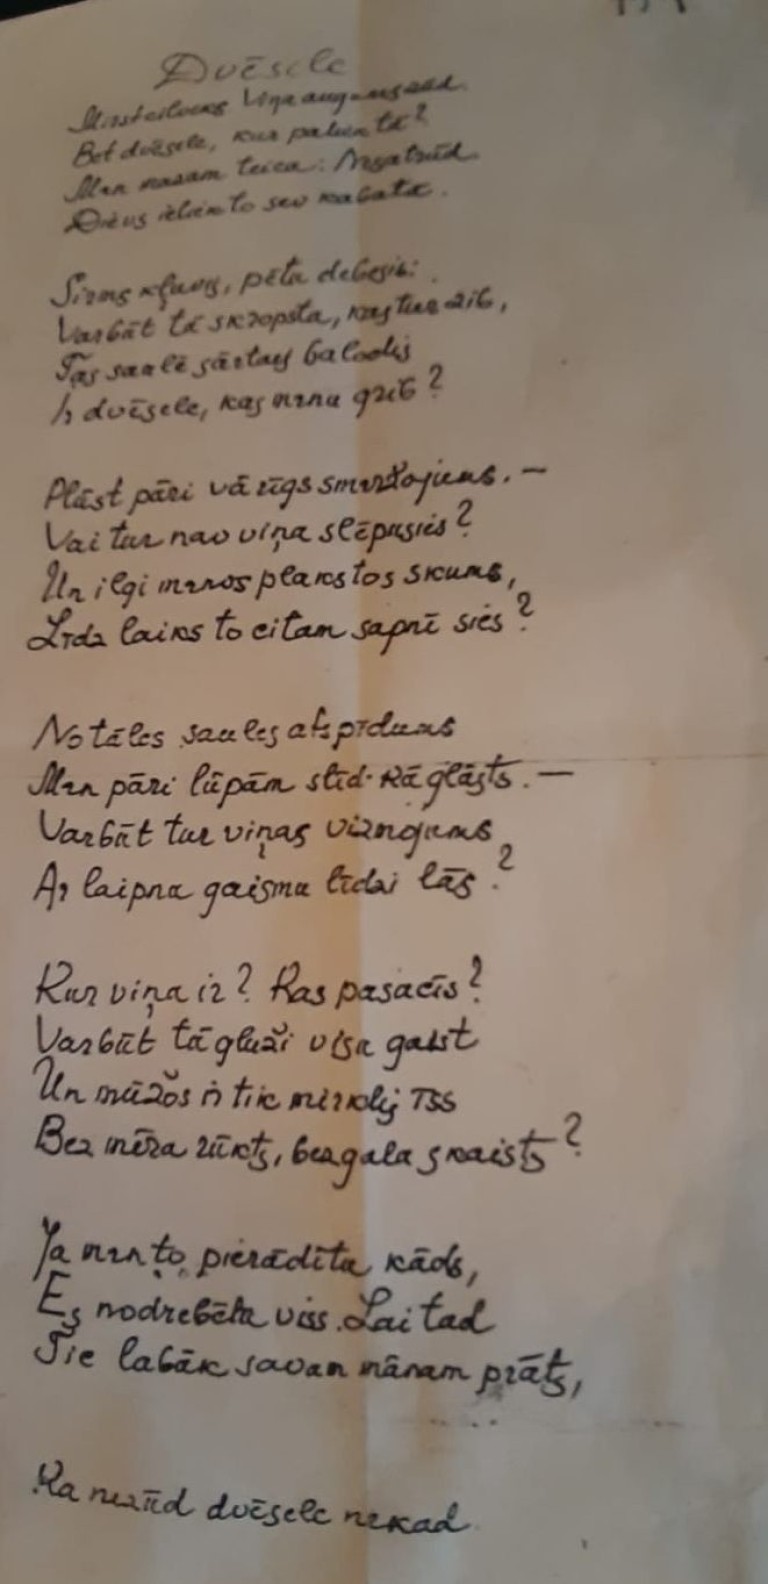 Dvēsele
Mirst cilvēks. Viņa augums zūd.
Bet dvēsele, kur paliek tā?
Man mazam teica: Nezūd.
Dievs ieliek to sev kabatā.
Sirms kļuvis, pēta debesis:
Varbūt tā skropsta, kas tur zib,
Tas saulē sārtais balodis
Ir dvēsele, kas mana grib?
Plūst pāri vārīgs smaržojums. —
Vai tur nav viņa slēpusies?
Un ilgi manos plakstos skums,
Līdz laiks to citam sapnī sies?
No tāles saules atspīdums
Man pāri lūpām slīd kā glāsts. —
Varbūt tur viņas vizmojums
Ar laipnu gaismu līdzi lās?
Kur viņa ir? Kas pasacīs?
Varbūt tā gluži visa gaist
Un mūžos ir tik mirklis īss
Bez mēra rūkts, bezgala skaists?
Ja man to pierādītu kāds,
Es nodrebētu viss. Lai tad
Tic labāk savam mānam prāts,
Ka nezūd dvēsele nekad.